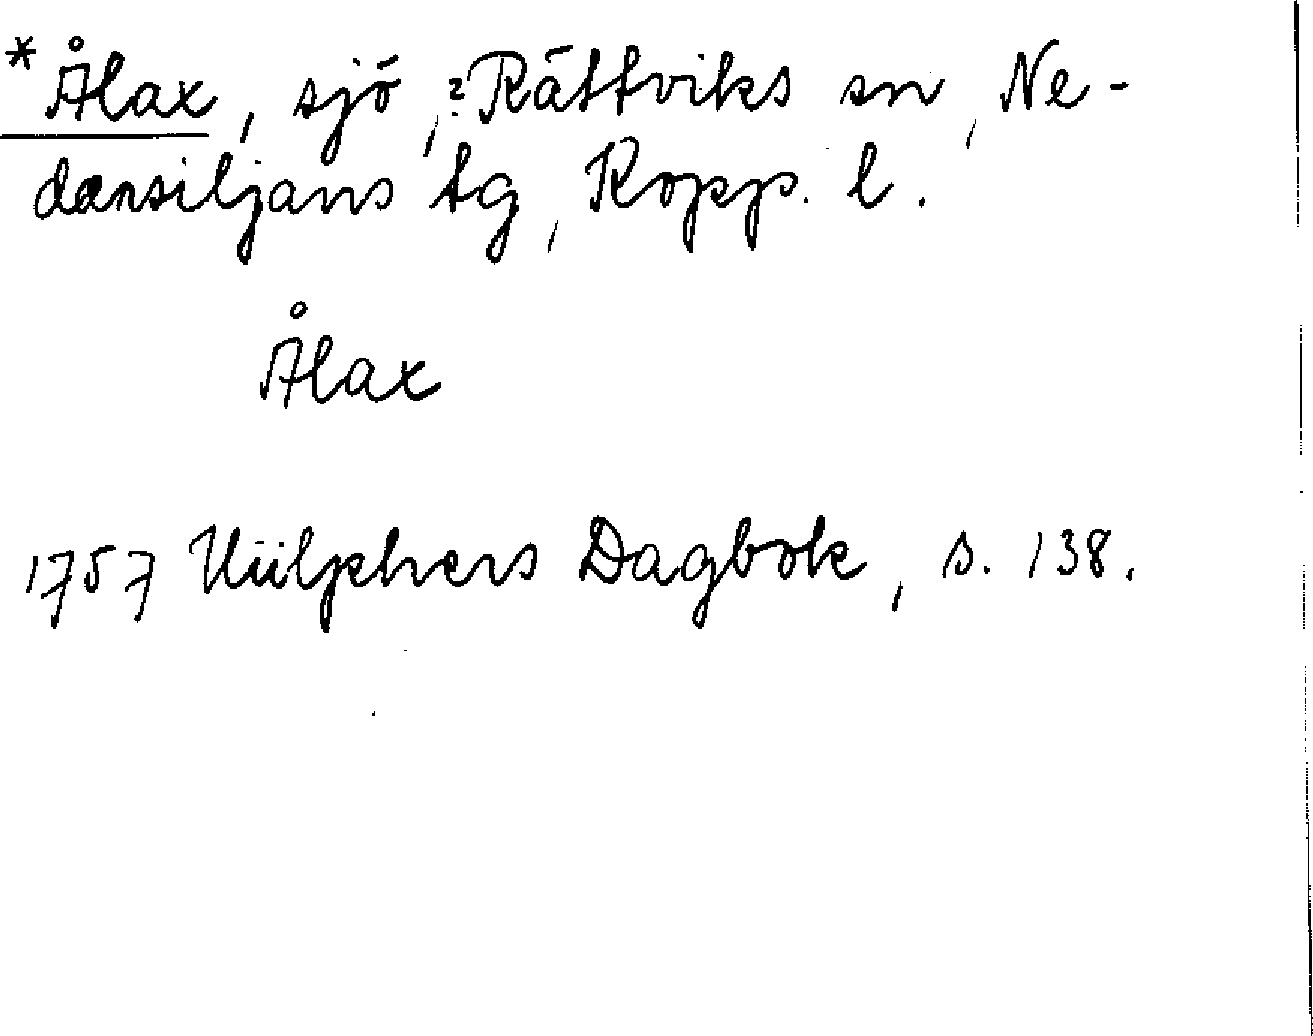 *Ålax, sjö, ?Rättviks sn, Ne-
dansiljans tg, Kopp. l.
Ålax
1757 Hülphers Dagbok, s. 138.